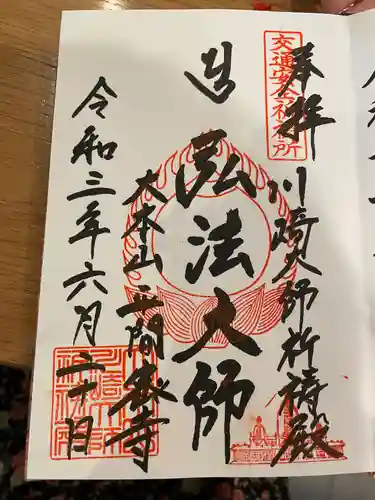 奉拝
交通安全祈祷所
川崎大師祈祷殿
弘法大師
大本山平間寺
令和三年六月二十日